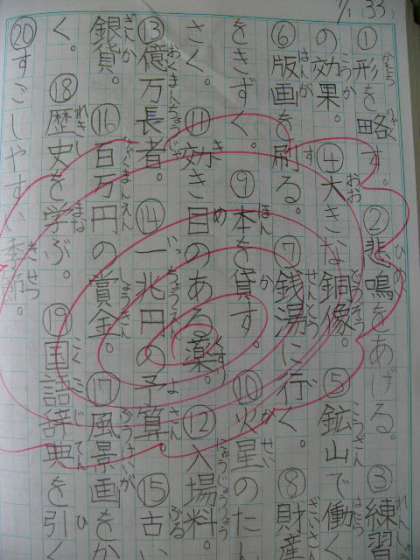 7/1 33
①形を略す。②悲鳴をあげる。③練習
の効果。④大きな銅像。⑤鉱山で働く
⑥版画を刷る。⑦銭湯に行く。⑧財産
をきずく。⑨本を貸す。⑩火星のたん
さく。⑪効き目のある薬。⑫入場料。
⑬億万長者。⑭一兆円の予算。⑮古い
銀貨。⑯百万円の賞金。⑰風景画をか
く。⑱歴史を学ぶ。⑲国語辞典を引く
⑳すごしやすい季節。